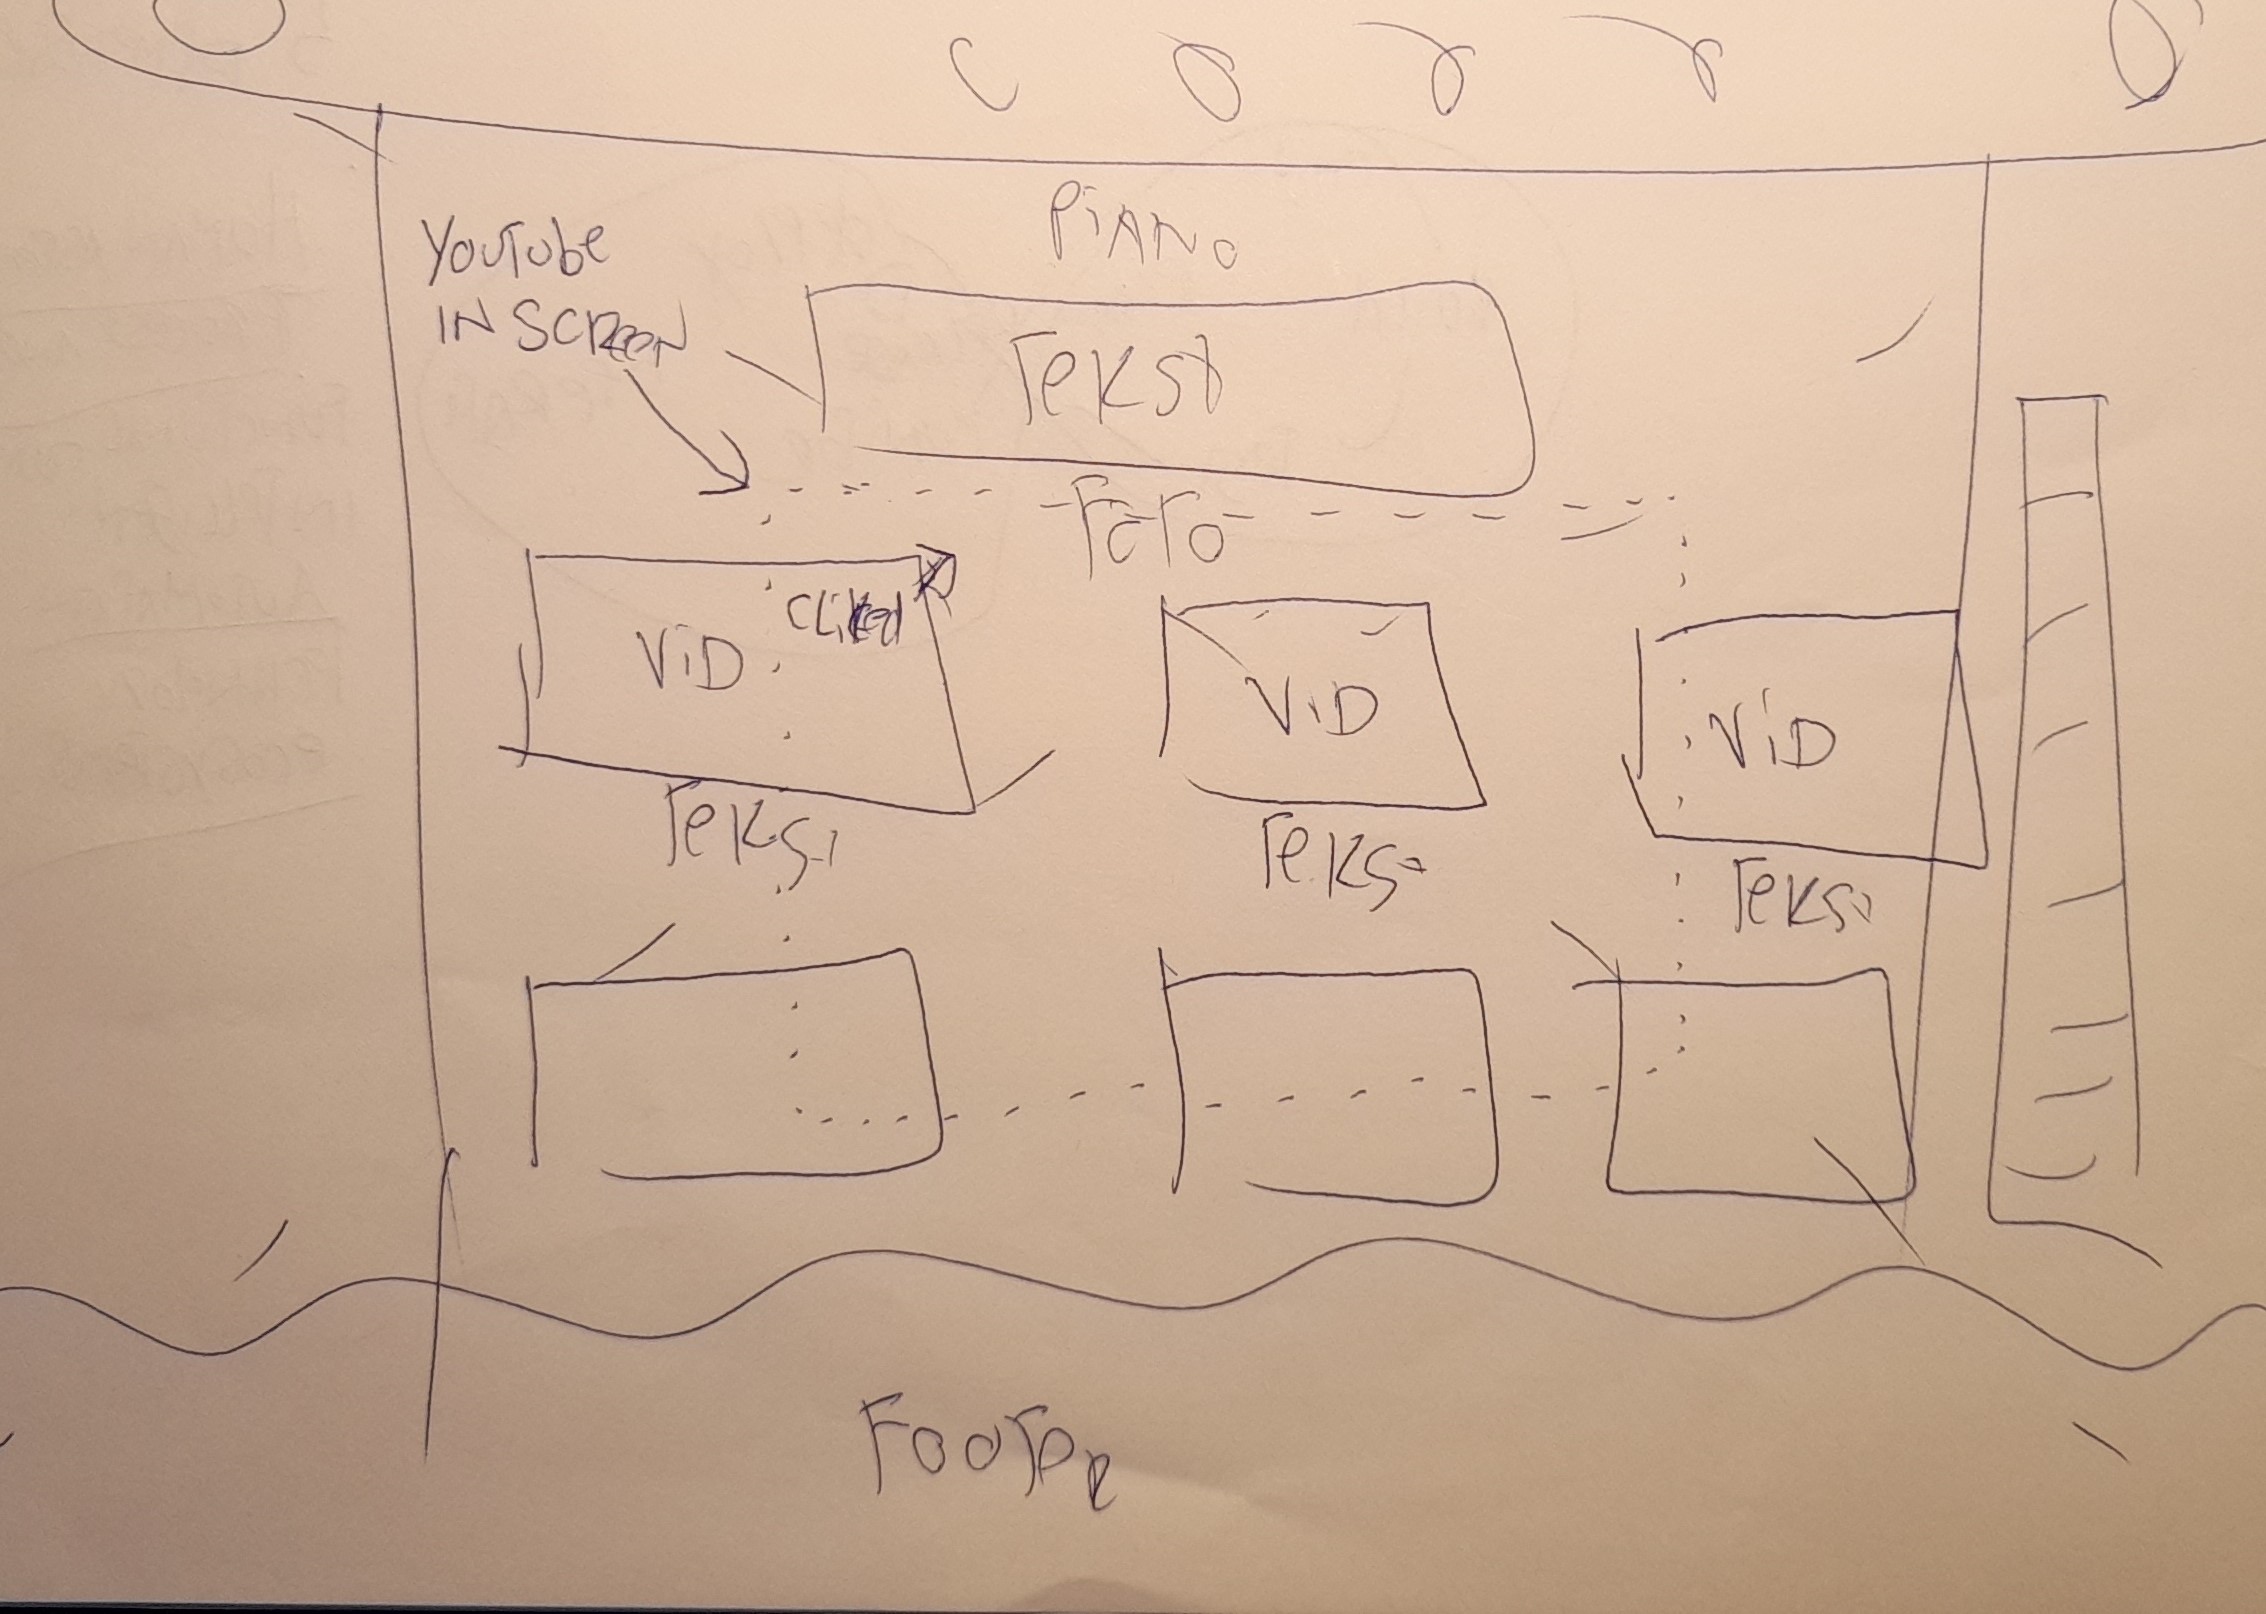 PiANO
YouTube
IN SCREEN
Tekst
FOTO
ViD
CLiked
ViD
ViD
Tekst
Tekst
Tekst
FOOTER